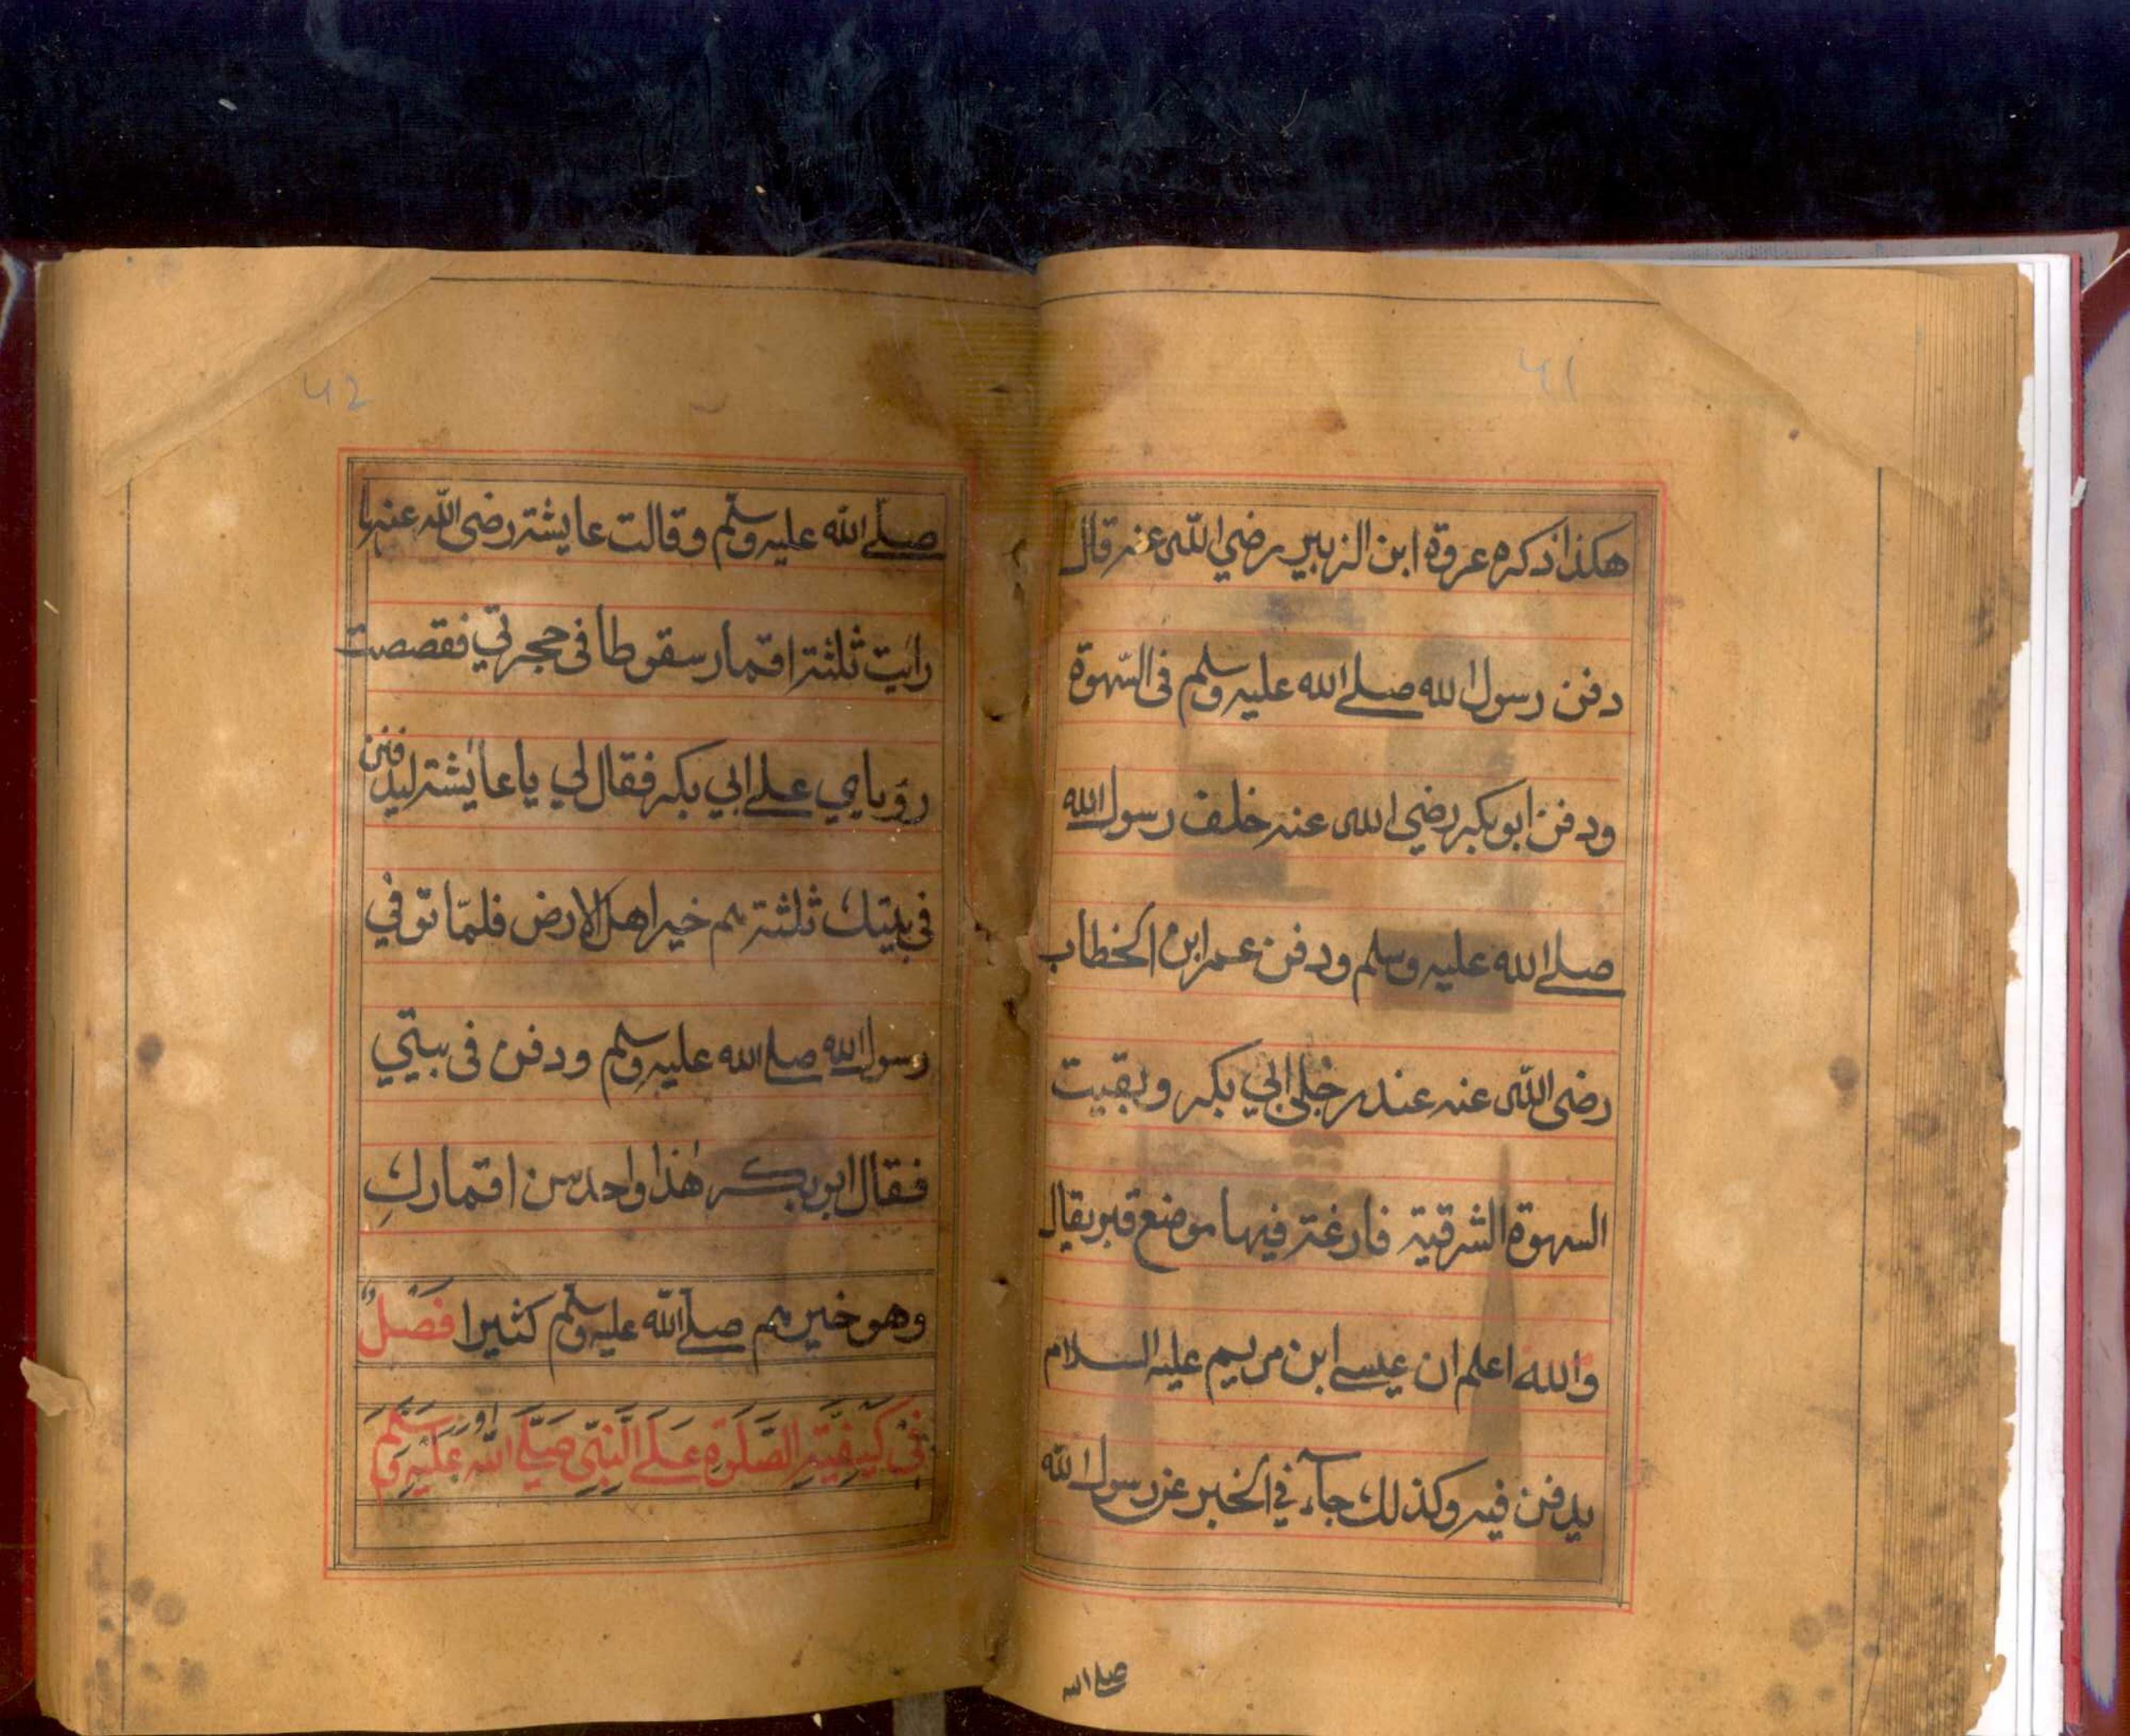 ۴۱
هكذا ذكره عروة ابن الزبير رضي الله عنه قال
دفن رسول الله صلے الله عليه وسلم فى السّهوة
ودفن ابو بكر رضي الله عنه خلف رسول الله
صلے الله عليه وسلم ودفن عمر ابن الخطاب
رضى الله عنه عند رجلى ابي بكر وبقيت
السهوة الشرقية فارغة فيها موضع قبر يقال
والله اعلم ان عيسے ابن مريم عليه السلام
يدفن فيه وكذلك جآء في الخبر عن رسول الله
صلے الله
۴۲
صلّے الله عليه وسلّم وقالت عايشة رضى الله عنها
رايت ثلثة اقمار سقوطا فى حجرتي فقصصت
رؤياي علے ابي بكر فقال لي يا عائشة ليدفنن
فى بيتك ثلثة هم خير اهل الارض فلمّا توفي
رسول الله صلے الله عليه وسلم ودفن فى بيتي
فقال ابو بكر هذا واحد من اقماركِ
وهو خيرهم صلے الله عليه وسلّم كثيرا فَصْلٌ
فِىْ كَيْفِيَّةِ الصَّلٰوةِ عَلَے النَّبِيِّ صَلَّے اللّٰهُ عَلَيْهِ وَسَلَّمَ